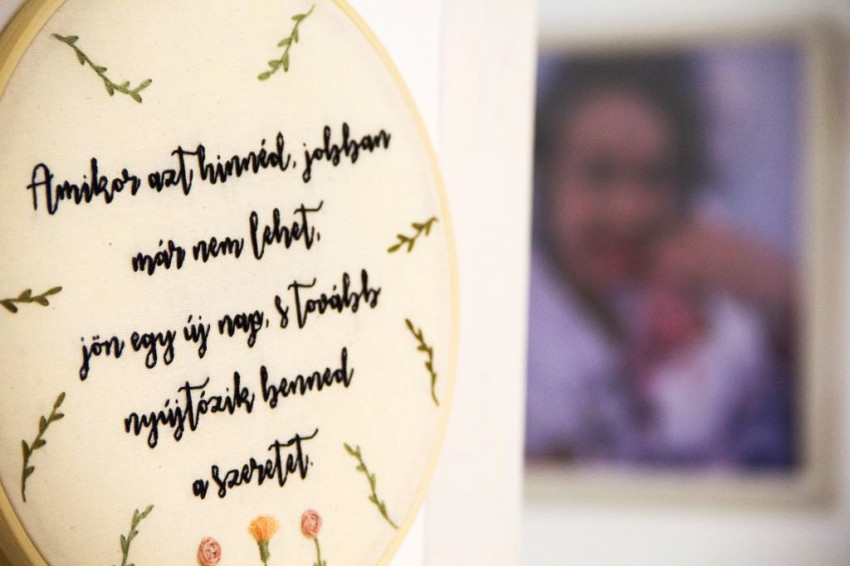 Amikor azt hinnéd, jobban
már nem lehet,
jön egy új nap, s tovább
nyújtózik benned
a szeretet.